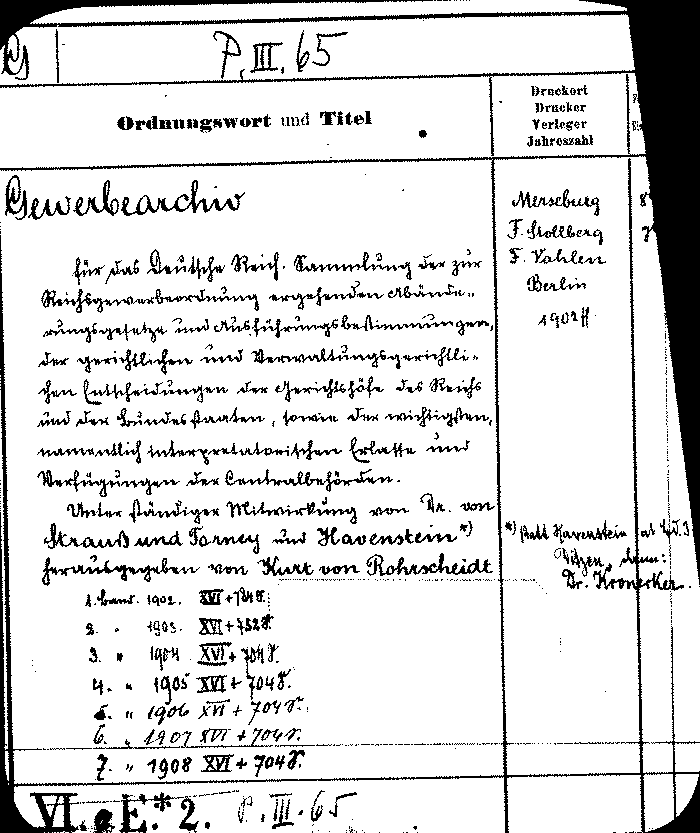 P. III. 65
Ordnungswort und Titel
Druckort
Drucker
Verleger
Jahreszahl
Gewerbearchiv
für das Deutsche Reich. Sammlung der zur
Reichsgewerbeordnung ergehenden Abände-
rungsgesetze und Ausführungsbestimmungen,
der gerichtlichen und Verwaltungsgerichtli-
chen Entscheidungen der Gerichtshöfe des Reichs
und der Bundesstaaten, sowie der wichtigsten,
namentlich interpretatorischen Erlasse und
Verfügungen der Centralbehörden.
Unter ständiger Mitwirkung von Dr. von
Strauß und Torney und Havenstein *)
herausgegeben von Kurt von Rohrscheidt
Merseburg
F. Stollberg
F. Vahlen
Berlin
1902 ff
*) statt Havenstein
dann:
Dr. Kronecker.
1. Band. 1902. XVI + 784 S.
2. " 1903. XVI + 752 S.
3. " 1904 XVI + 704 S.
4. " 1905 XVI + 704 S.
5. " 1906 XVI + 704 S.
6. " 1907 XVI + 704 S.
7. " 1908 XVI + 704 S.
VI. E.* 2. P. III. 65